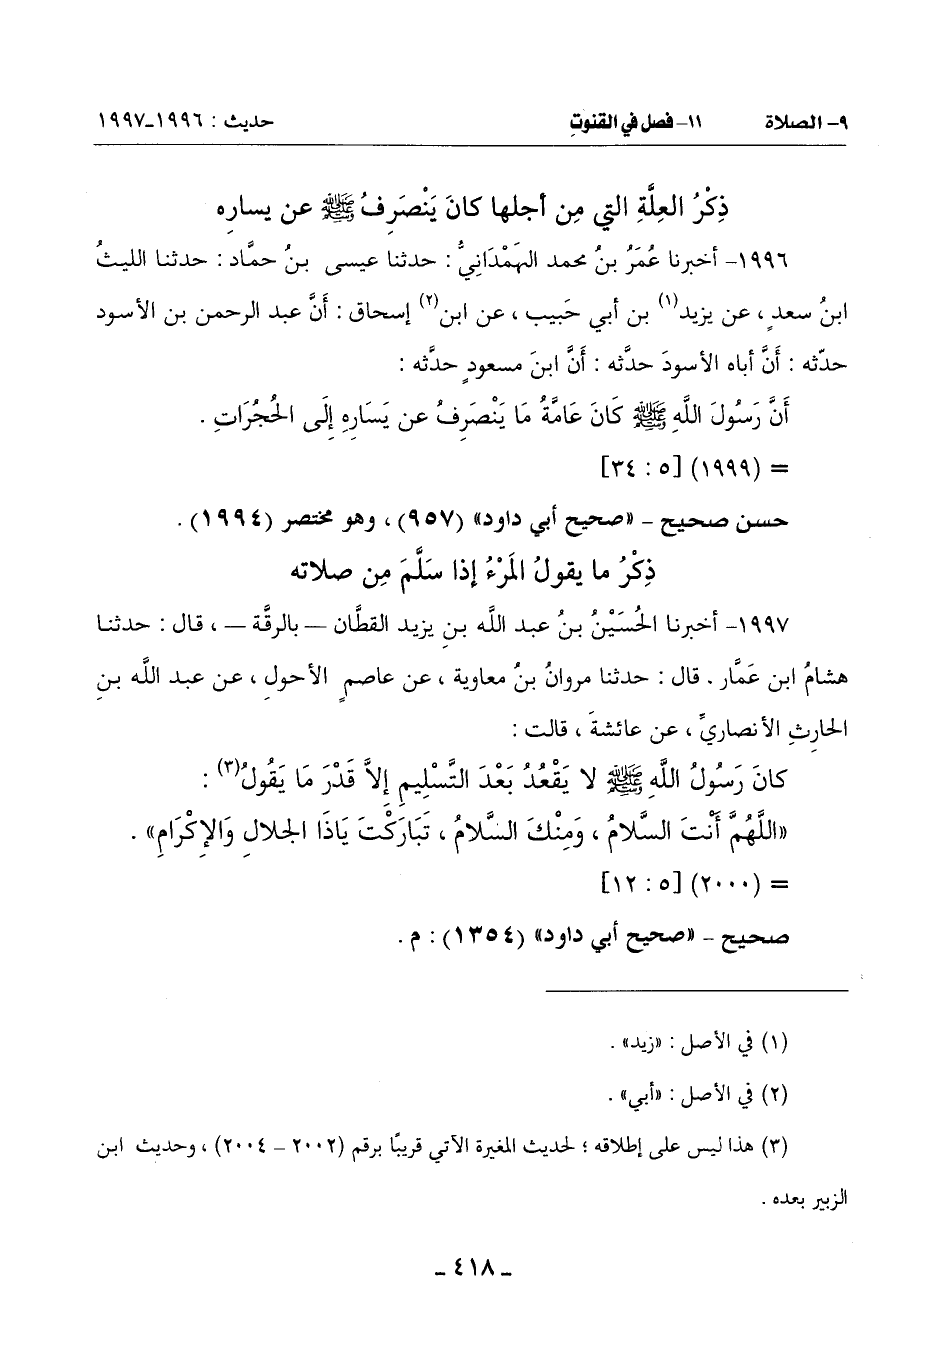 ٩- الصلاة ١١- فصل في القنوتِ حديث : ١٩٩٦-١٩٩٧
ذِكْرُ العِلَّةِ التي مِن أجلها كانَ يَنْصَرِفُ ﷺ عن يسارِه
١٩٩٦- أخبرنا عُمَرُ بنُ محمد الهَمْدَانِيُّ : حدثنا عيسى بنُ حمَّاد : حدثنا الليثُ
ابنُ سعدٍ ، عن يزيد(١) بن أبي حَبيب ، عن ابن(٢) إسحاق : أنَّ عبد الرحمن بن الأسود
حدّثه : أنَّ أباه الأسودَ حدَّثه : أنَّ ابنَ مسعودٍ حدَّثه :
أَنَّ رَسُولَ اللَّهِ ﷺ كَانَ عَامَّةُ مَا يَنْصَرِفُ عن يَسَارِهِ إِلَى الحُجُرَاتِ .
= (١٩٩٩) [٥ : ٣٤]
حسن صحيح - «صحيح أبي داود» (٩٥٧) ، وهو مختصر (١٩٩٤) .
ذِكْرُ ما يقولُ المَرْءُ إذا سَلَّمَ مِن صلاته
١٩٩٧- أخبرنا الحُسَيْنُ بنُ عبد اللَّه بنِ يزيد القطَّان — بالرقَّة — ، قال : حدثنا
هشامُ ابن عَمَّار . قال : حدثنا مروانُ بنُ معاوية ، عن عاصمٍ الأحولِ ، عن عبد اللَّه بنِ
الحارِثِ الأنصاريِّ ، عن عائشةَ ، قالت :
كانَ رَسُولُ اللَّهِ ﷺ لا يَقْعُدُ بَعْدَ التَّسْلِيمِ إِلاَّ قَدْرَ مَا يَقُولُ(٣) :
«اللَّهُمَّ أَنْتَ السَّلامُ ، وَمِنْكَ السَّلامُ ، تَبَارَكْتَ يَاذَا الجلالِ وَالإِكْرَامِ» .
= (٢٠٠٠) [٥ : ١٢]
صحيح - «صحيح أبي داود» (١٣٥٤) : م .
(١) في الأصل : «زيد» .
(٢) في الأصل : «أبي» .
(٣) هذا ليس على إطلاقه ؛ لحديث المغيرة الآتي قريبًا برقم (٢٠٠٢ - ٢٠٠٤) ، وحديث ابن
الزبير بعده .
- ٤١٨ -